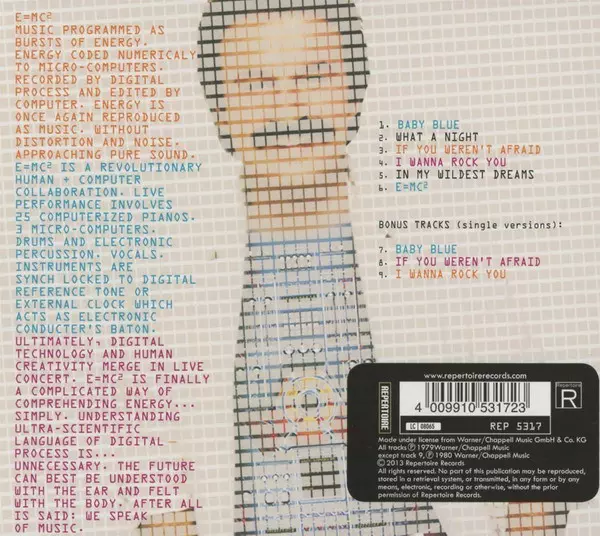 E=MC²
MUSIC PROGRAMMED AS
BURSTS OF ENERGY.
ENERGY CODED NUMERICALY
TO MICRO-COMPUTERS.
RECORDED BY DIGITAL
PROCESS AND EDITED BY
COMPUTER. ENERGY IS
ONCE AGAIN REPRODUCED
AS MUSIC. WITHOUT
DISTORTION AND NOISE.
APPROACHING PURE SOUND.
E=MC² IS A REVOLUTIONARY
HUMAN + COMPUTER
COLLABORATION. LIVE
PERFORMANCE INVOLVES
25 COMPUTERIZED PIANOS.
3 MICRO-COMPUTERS.
DRUMS AND ELECTRONIC
PERCUSSION. VOCALS.
INSTRUMENTS ARE
SYNCH LOCKED TO DIGITAL
REFERENCE TONE OR
EXTERNAL CLOCK WHICH
ACTS AS ELECTRONIC
CONDUCTER'S BATON.
ULTIMATELY, DIGITAL
TECHNOLOGY AND HUMAN
CREATIVITY MERGE IN LIVE
CONCERT. E=MC² IS FINALLY
A COMPLICATED WAY OF
COMPREHENDING ENERGY...
SIMPLY. UNDERSTANDING
ULTRA-SCIENTIFIC
LANGUAGE OF DIGITAL
PROCESS IS...
UNNECESSARY. THE FUTURE
CAN BEST BE UNDERSTOOD
WITH THE EAR AND FELT
WITH THE BODY. AFTER ALL
IS SAID: WE SPEAK
OF MUSIC.
1. BABY BLUE
2. WHAT A NIGHT
3. IF YOU WEREN'T AFRAID
4. I WANNA ROCK YOU
5. IN MY WILDEST DREAMS
6. E=MC²
BONUS TRACKS (single versions):
7. BABY BLUE
8. IF YOU WEREN'T AFRAID
9. I WANNA ROCK YOU
www.repertoirerecords.com
REPERTOIRE
Repertoire
R
4 009910 531723
LC 08065
REP 5317
Made under license from Warner/Chappell Music GmbH & Co. KG
All tracks ℗ 1979 Warner/Chappell Music
except track 9, ℗ 1980 Warner/Chappell Music
© 2013 Repertoire Records
All rights reserved. No part of this publication may be reproduced,
stored in a retrieval system, or transmitted, in any form or by any
means, electronic, recording or otherwise, without the prior
permission of Repertoire Records.